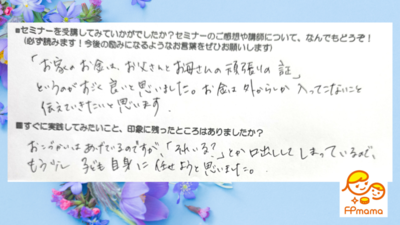 ■セミナーを受講してみていかがでしたか？セミナーのご感想や講師について、なんでもどうぞ！
（必ず読みます！今後の励みになるようなお言葉をぜひお願いします）
「お家のお金は、お父さんとお母さんの頑張りの証」
というのがすごく良いと思いました。お金は外からしか入ってこないこと
伝えていきたいと思います。
■すぐに実践してみたいこと、印象に残ったところはありましたか？
おこづかいはあげているのですが、「それいる？」とか口出ししてしまっているので、
もう少し子ども自身に任せようと思いました。
FPmama